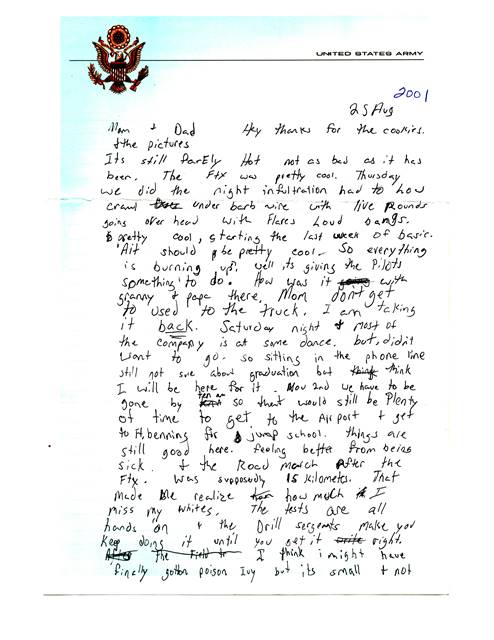 UNITED STATES ARMY
2001
25 Aug
Mom + Dad Hey thanks for the cookies.
+ the pictures
Its still Hot not as bad as it has
been. The Ftx was pretty cool. Thursday
we did the night infultration had to Low
crawl under barb wire with live Rounds
going over head with Flares Loud bangs.
pretty cool, starting the last week of basic.
Ait should be pretty cool. So everything
is burning up, well its giving the Pilots
something to do. How was it with
granny + papa there, Mom don't get
to used to the truck. I am taking
it back. Saturday night + most of
the company is at some dance. but, didnt
want to go. so sitting in the phone line
still not sure about graduation but think
I will be here for it. Nov 2nd we have to be
gone by ten am so that would still be Plenty
of time to get to the Airport + get
to Ft, benning for jump school. things are
still good here. feeling better from being
sick. + the Road march After the
Ftx. Was supposedly 15 kilometers. That
made Me realize how much I
miss my whites. The tests are all
hands on + the Drill sergeants make you
Keep doing it until you get it right.
After The Field to I think i might have
finally gotton poison Ivy but its small + not